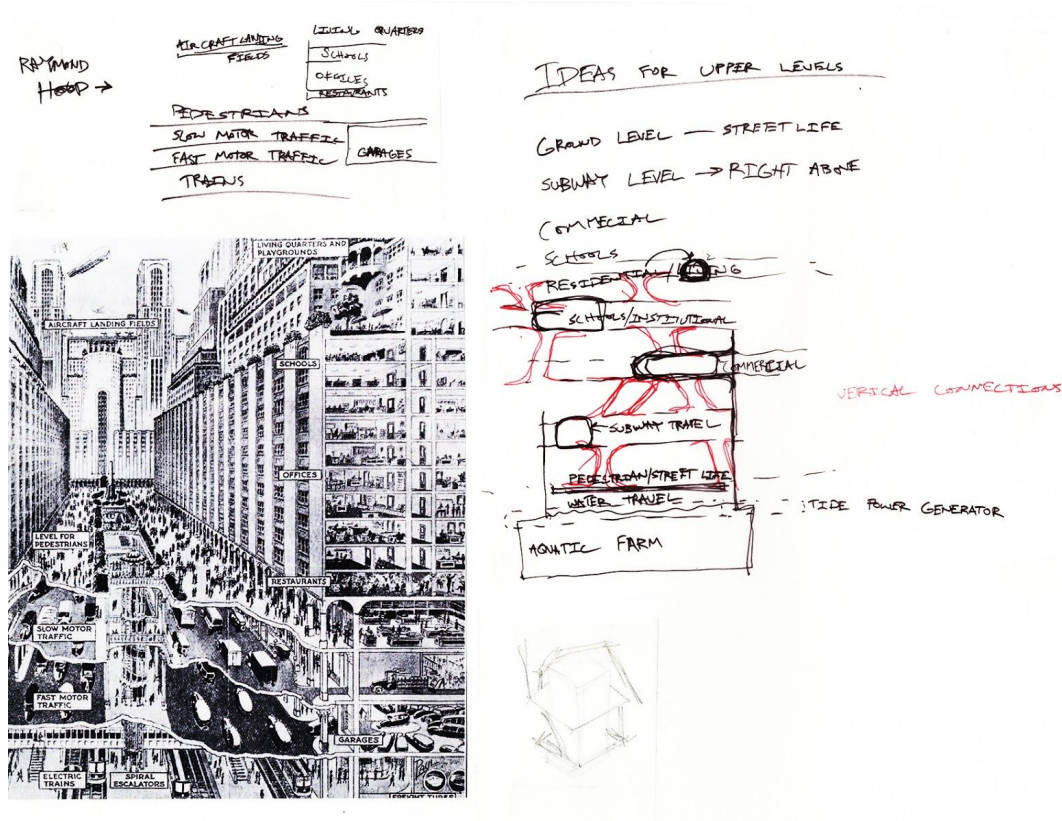 RAYMOND
HOOD →
AIRCRAFT LANDING
FIELDS
LIVING QUARTERS
SCHOOLS
OFFICES
RESTAURANTS
PEDESTRIANS
SLOW MOTOR TRAFFIC
FAST MOTOR TRAFFIC
GARAGES
TRAINS
LIVING QUARTERS AND
PLAYGROUNDS
AIRCRAFT LANDING FIELDS
SCHOOLS
OFFICES
LEVEL FOR
PEDESTRIANS
RESTAURANTS
SLOW MOTOR
TRAFFIC
FAST MOTOR
TRAFFIC
GARAGES
ELECTRIC
TRAINS
SPIRAL
ESCALATORS
FREIGHT TUBES
IDEAS FOR UPPER LEVELS
GROUND LEVEL — STREET LIFE
SUBWAY LEVEL → RIGHT ABOVE
COMMECIAL
SCHOOLS
RESIDENTIAL / LIVING
SCHOOLS/INSTITUTIONAL
COMMERCIAL
VERICAL CONNECTIONS
SUBWAY TRAVEL
PEDESTRIAN/STREET LIFE
WATER TRAVEL
TIDE POWER GENERATOR
AQUATIC FARM